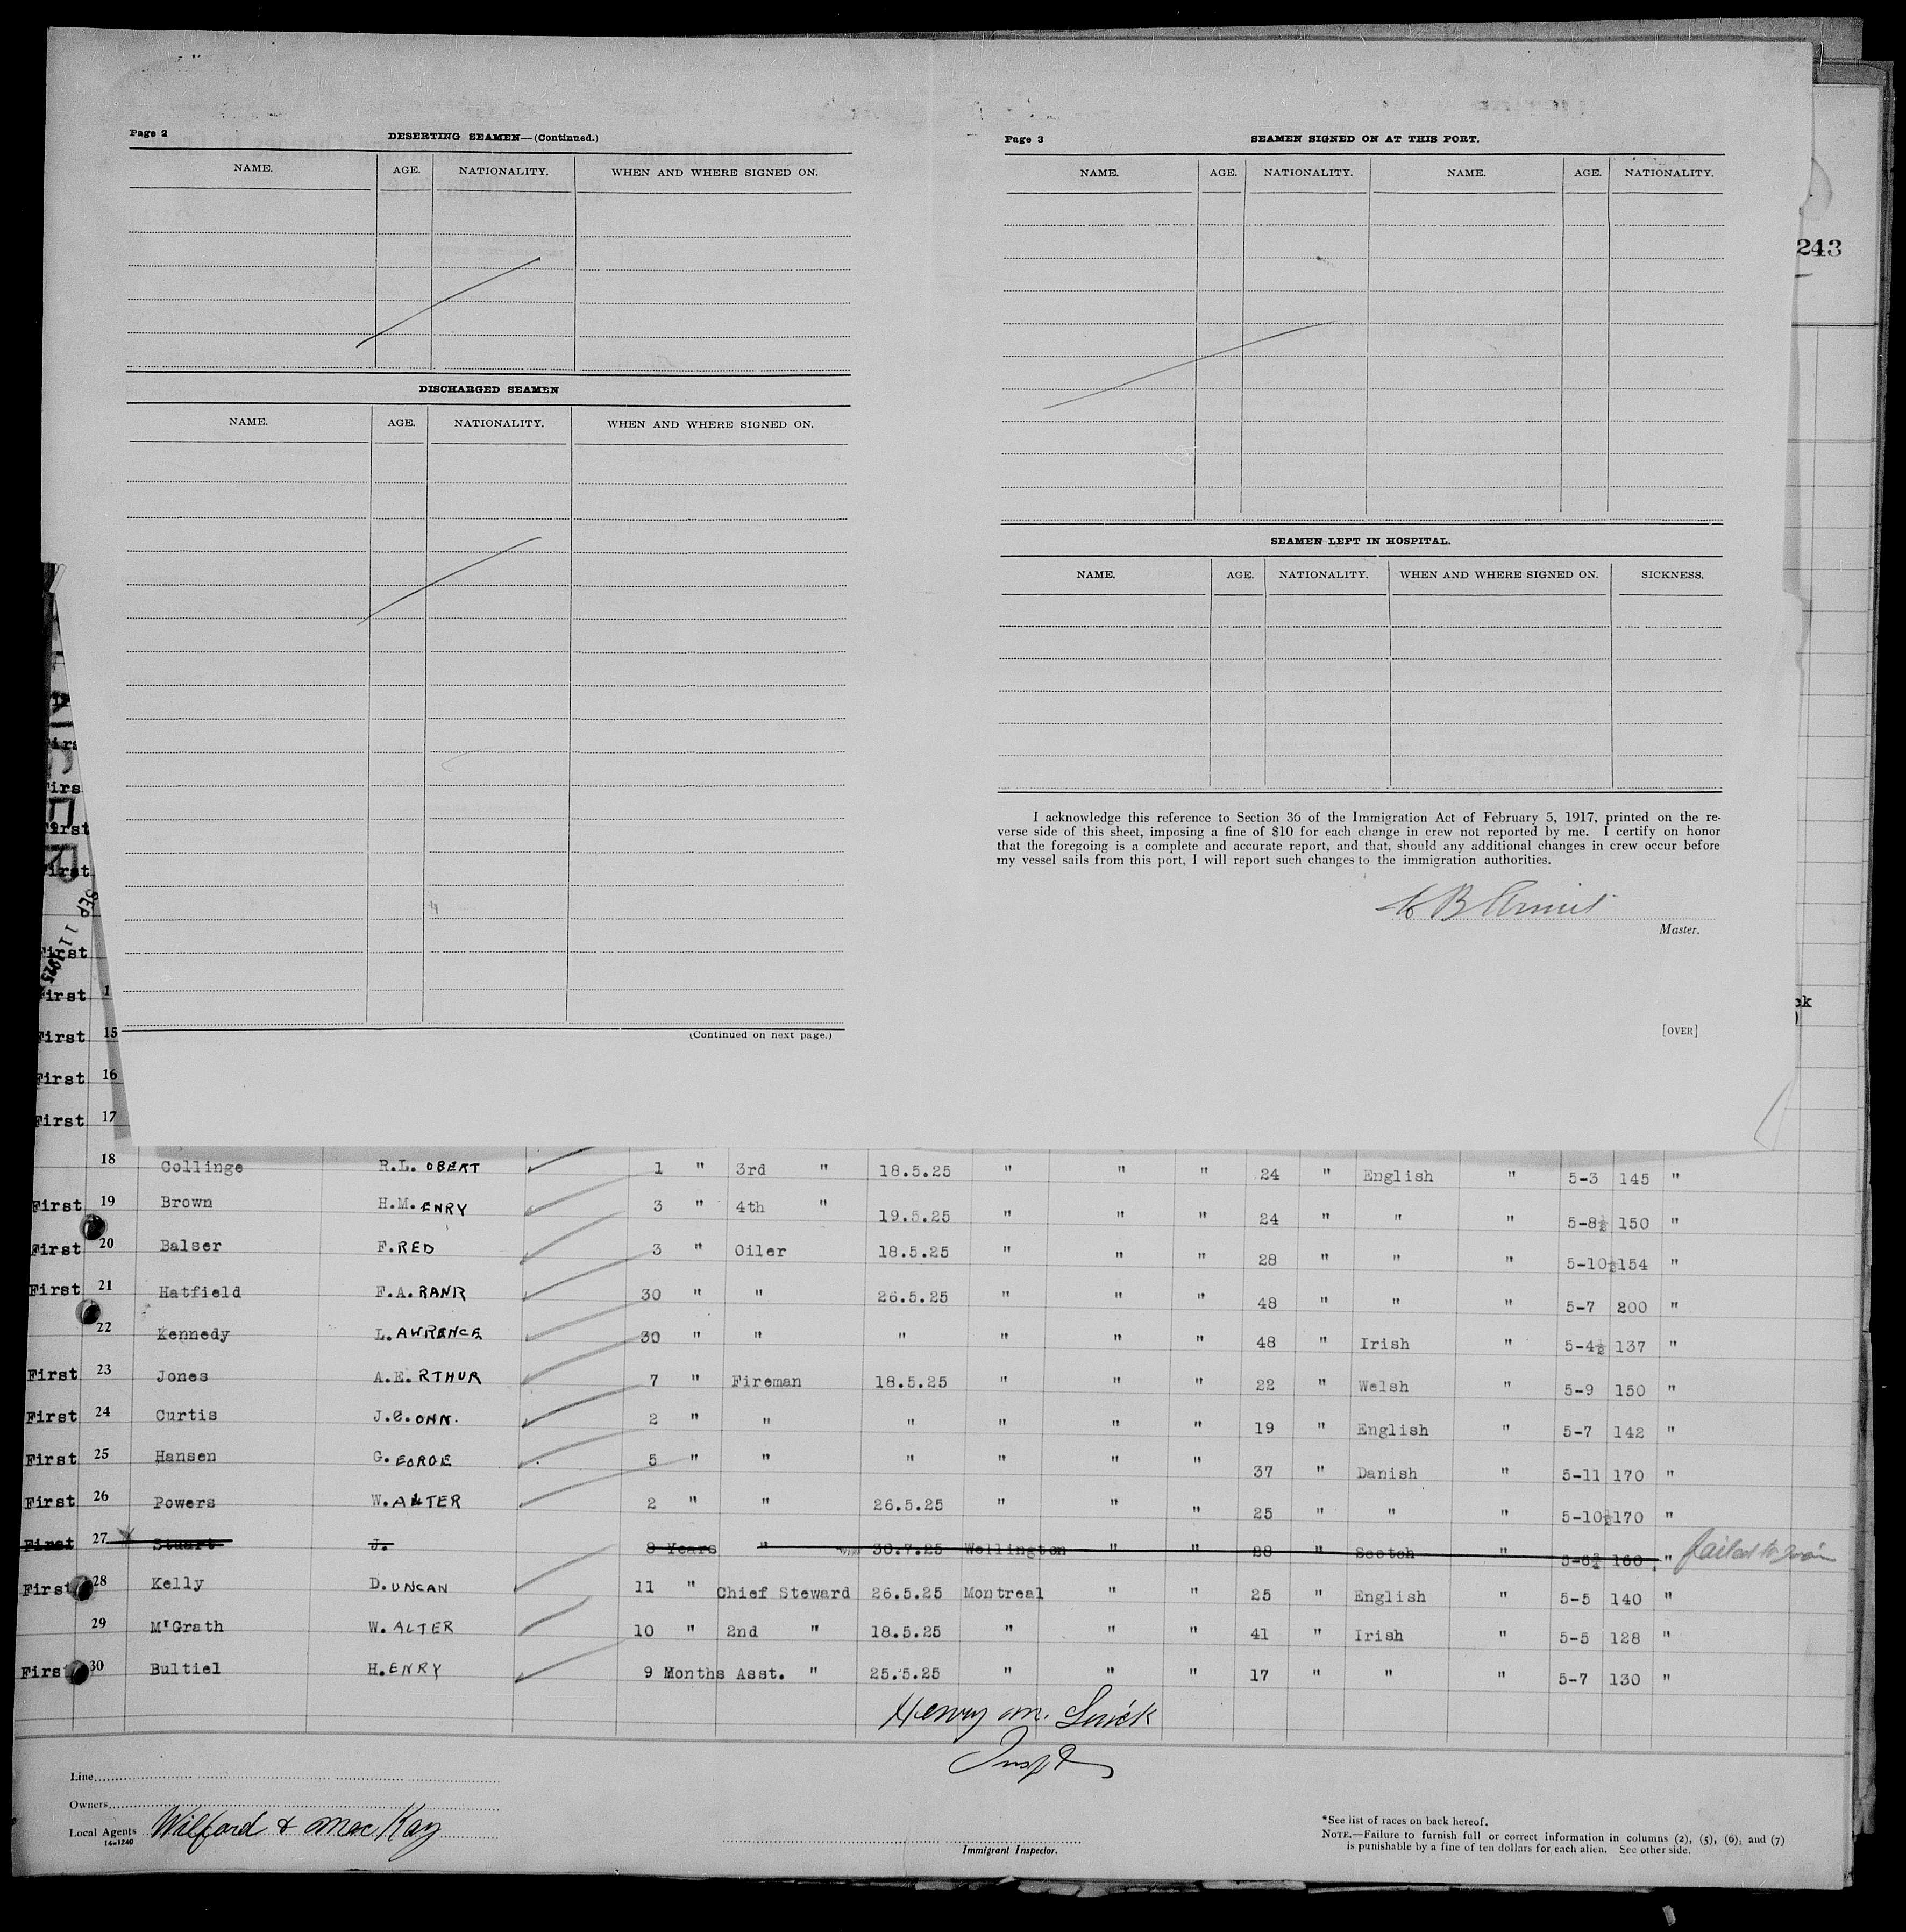 Page 2
DESERTING SEAMEN—(Continued.)
NAME. AGE. NATIONALITY. WHEN AND WHERE SIGNED ON.
DISCHARGED SEAMEN
NAME. AGE. NATIONALITY. WHEN AND WHERE SIGNED ON.
(Continued on next page.)
Page 3
SEAMEN SIGNED ON AT THIS PORT.
NAME. AGE. NATIONALITY. NAME. AGE. NATIONALITY.
SEAMEN LEFT IN HOSPITAL.
NAME. AGE. NATIONALITY. WHEN AND WHERE SIGNED ON. SICKNESS.
I acknowledge this reference to Section 36 of the Immigration Act of February 5, 1917, printed on the re-
verse side of this sheet, imposing a fine of $10 for each change in crew not reported by me. I certify on honor
that the foregoing is a complete and accurate report, and that, should any additional changes in crew occur before
my vessel sails from this port, I will report such changes to the immigration authorities.
Master.
[OVER]
243
SEP 11 1925
First
First
First
First 15
First 16
First 17
18 Collinge R.L. OBERT 1 " 3rd " 18.5.25 " " " 24 " English " 5-3 145 "
First 19 Brown H.M. ENRY 3 " 4th " 19.5.25 " " " 24 " " " 5-8½ 150 "
First 20 Balser F.RED 3 " Oiler 18.5.25 " " " 28 " " " 5-10½ 154 "
First 21 Hatfield F.A. RANK 30 " " 26.5.25 " " " 48 " " " 5-7 200 "
22 Kennedy L. AWRENCE 30 " " " " " " 48 " Irish " 5-4½ 137 "
First 23 Jones A.E. RTHUR 7 " Fireman 18.5.25 " " " 22 " Welsh " 5-9 150 "
First 24 Curtis J.C. OHN. 2 " " " " " " 19 " English " 5-7 142 "
First 25 Hansen G. EORGE 5 " " " " " " 37 " Danish " 5-11 170 "
First 26 Powers W.ALTER 2 " " 26.5.25 " " " 25 " " " 5-10½ 170 "
First 27 Stuart J. 8 Years " 30.7.25 Wellington " " 28 " Scotch " 160 " failed to join
First 28 Kelly D. UNCAN 11 " Chief Steward 26.5.25 Montreal " " 25 " English " 5-5 140 "
29 McGrath W. ALTER 10 " 2nd " 18.5.25 " " " 41 " Irish " 5-5 128 "
First 30 Bultiel H. ENRY 9 Months Asst. " 25.5.25 " " " 17 " " " 5-7 130 "
Henry M.
Inspt
Line
Owners
Local Agents Wilford & MacKay
14-1240
Immigrant Inspector.
*See list of races on back hereof.
NOTE.—Failure to furnish full or correct information in columns (2), (5), (6), and (7)
is punishable by a fine of ten dollars for each alien. See other side.